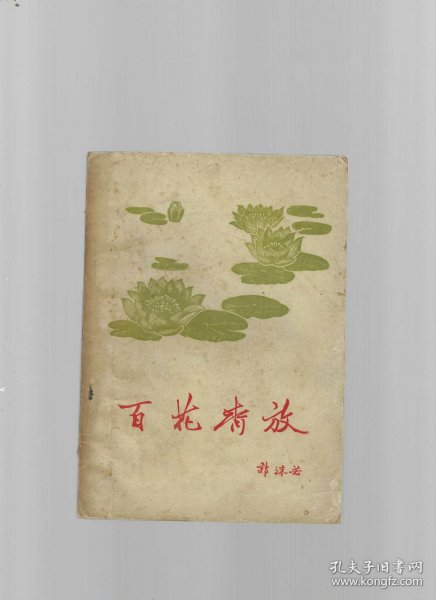 百花齊放
郭沫若
孔夫子旧书网
www.kongfz.com